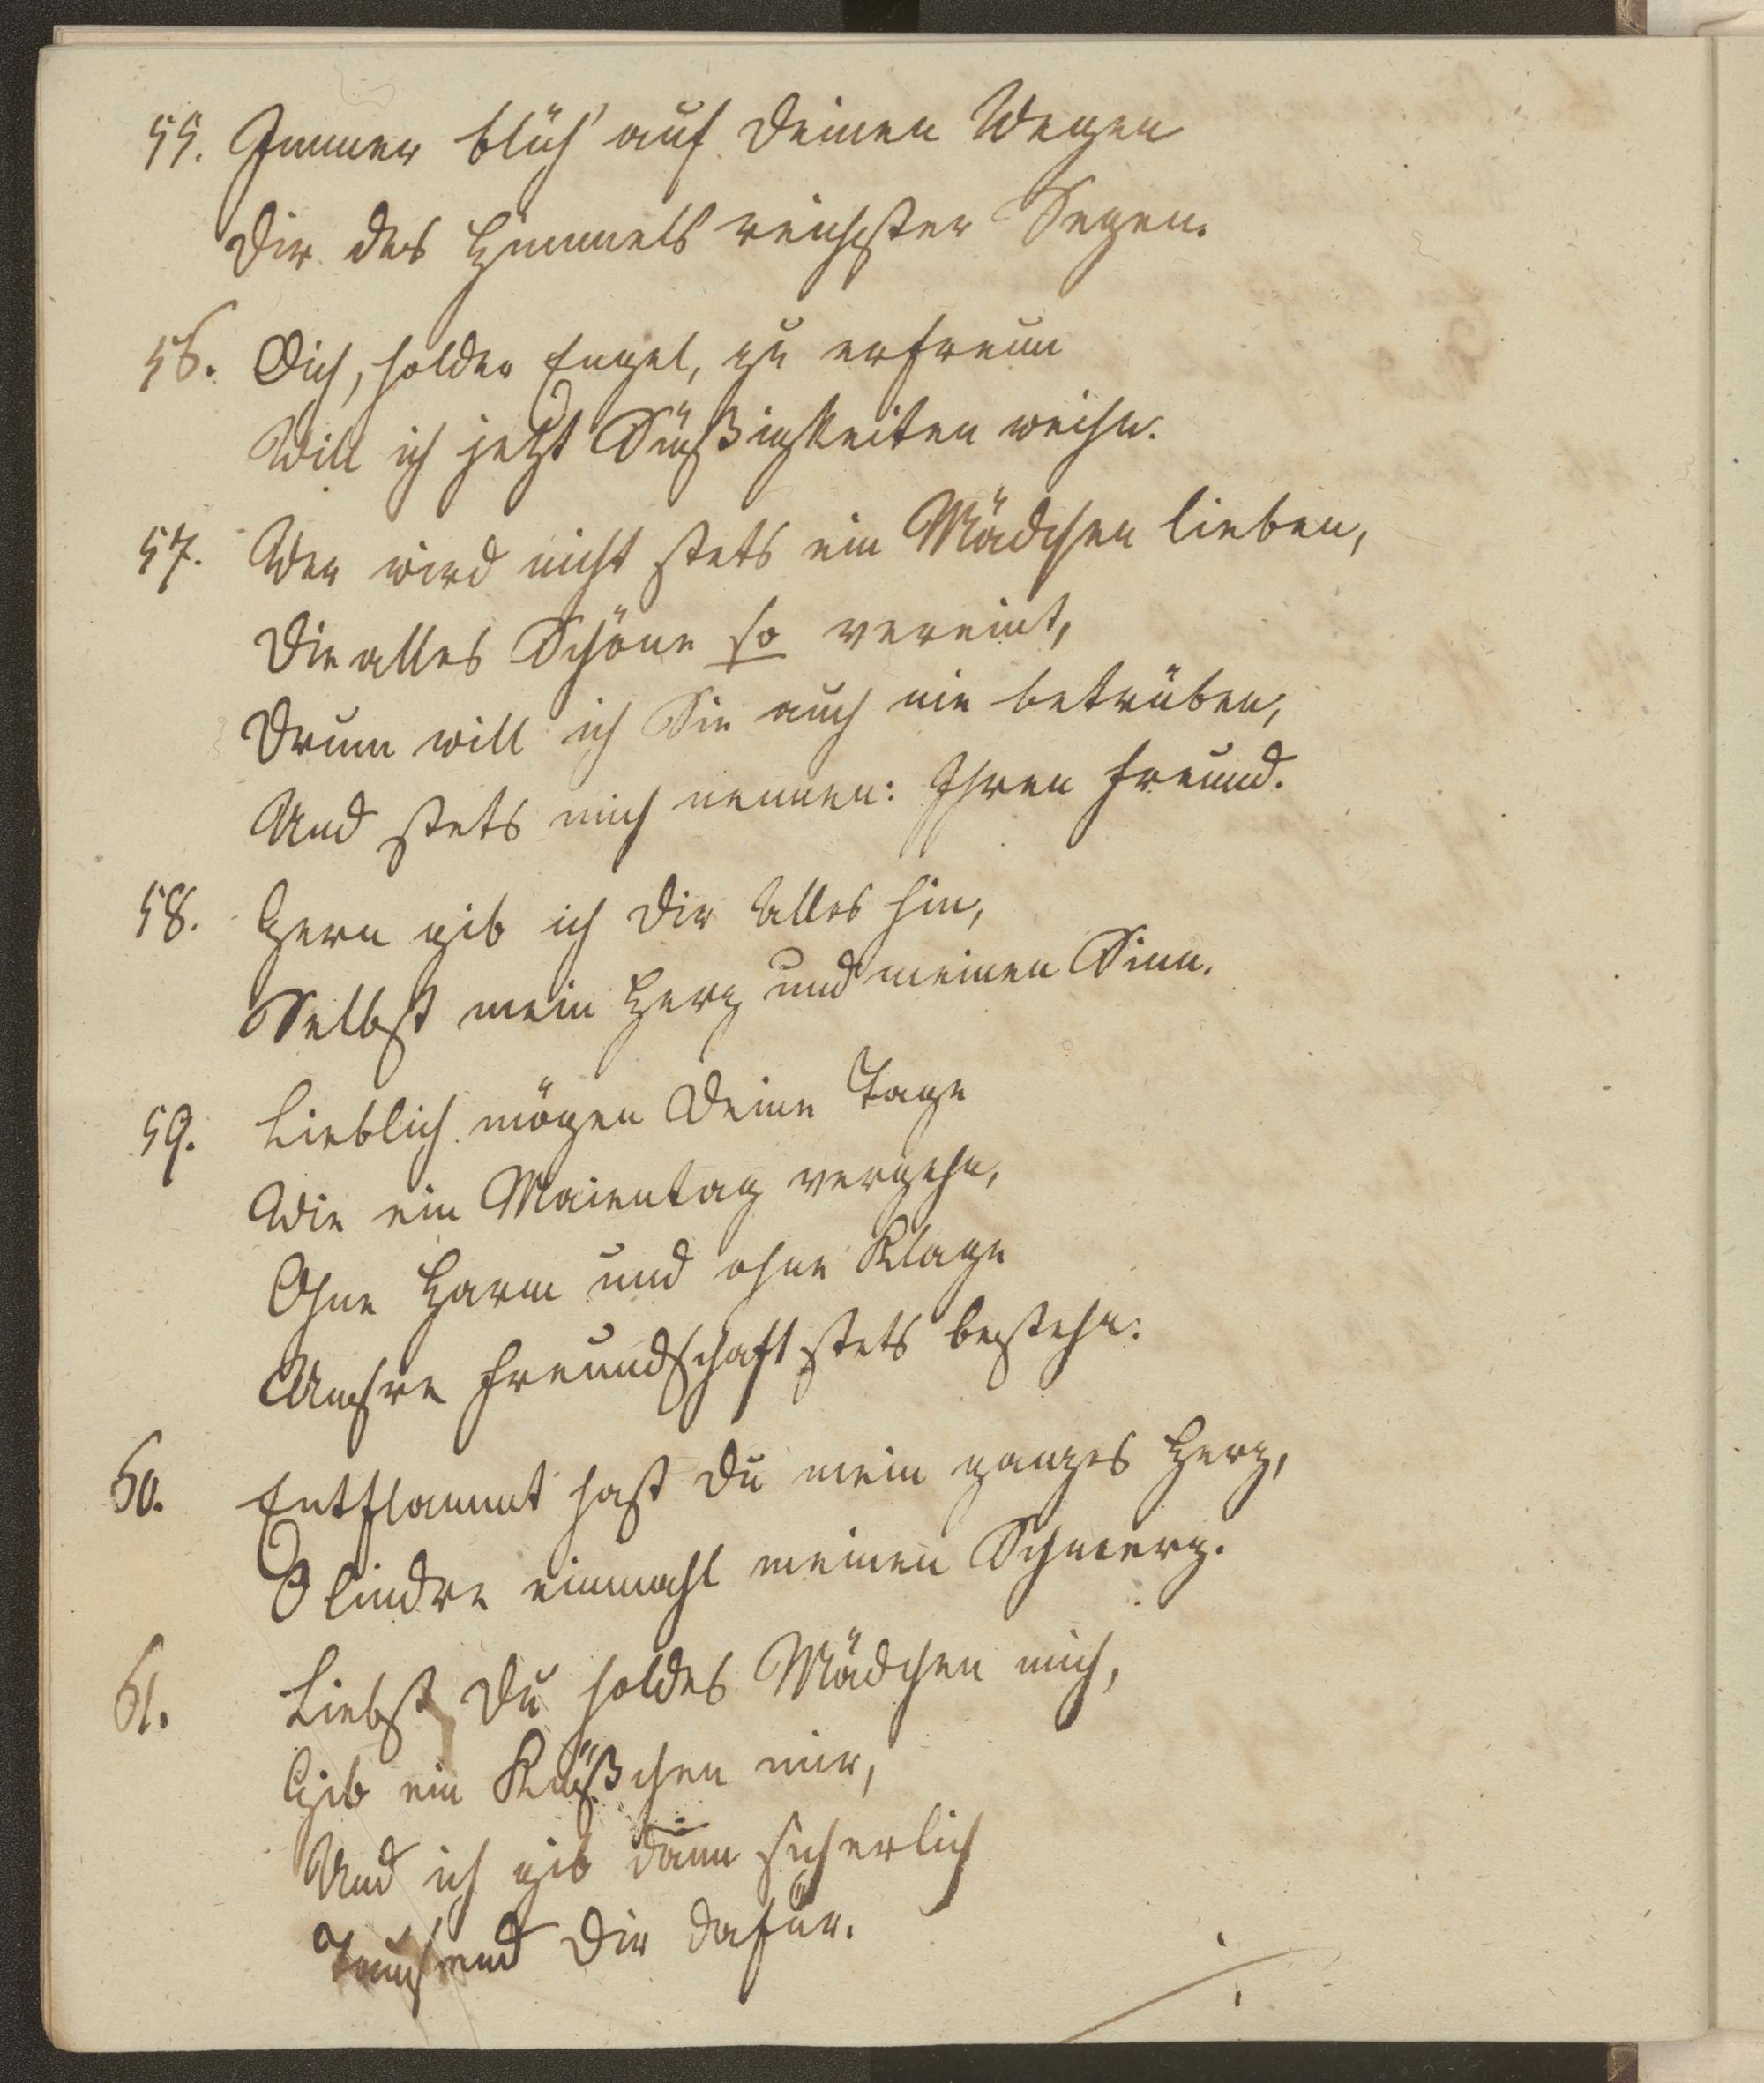 55. Immer blüh' auf Deinen Wegen
Dir des Himmels reichster Segen.
56. Dich, holder Engel, zu erfreun
Will ich jetzt Süßigkeiten weihn.
57. Wer wird nicht stets ein Mädchen lieben,
Die alles Schöne so vereint,
Drum will ich Sie auch nie betrüben,
Und stets mich nennen: Ihren Freund.
58. Gern gib ich Dir Alles hin,
Selbst mein Herz und meinen Sinn.
59. Lieblich mögen Deine Tage
Wie ein Maientag vergehn,
Ohne Harm und ohne Klage
Unsre Freundschaft stets bestehn.
60. Entflammt hast Du mein ganzes Herz,
O lindre einmahl meinen Schmerz.
61. Liebst Du holdes Mädchen mich,
Gib ein Küßchen mir,
Und ich gib dann sicherlich
Tausend Dir dafür.